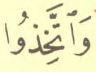 وَٱتَّخِذُوا